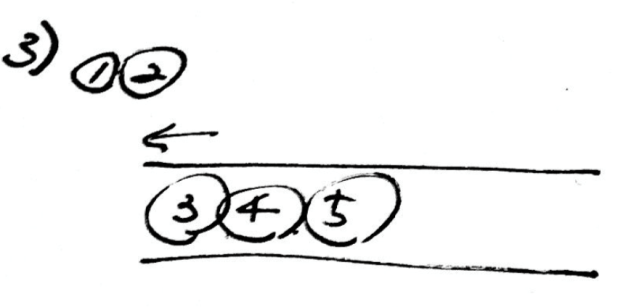 3) ① ②
←
③ ④ ⑤